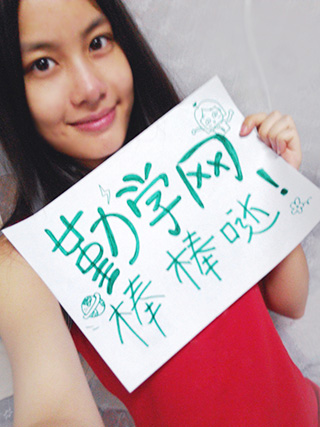 勤学网
棒棒哒！